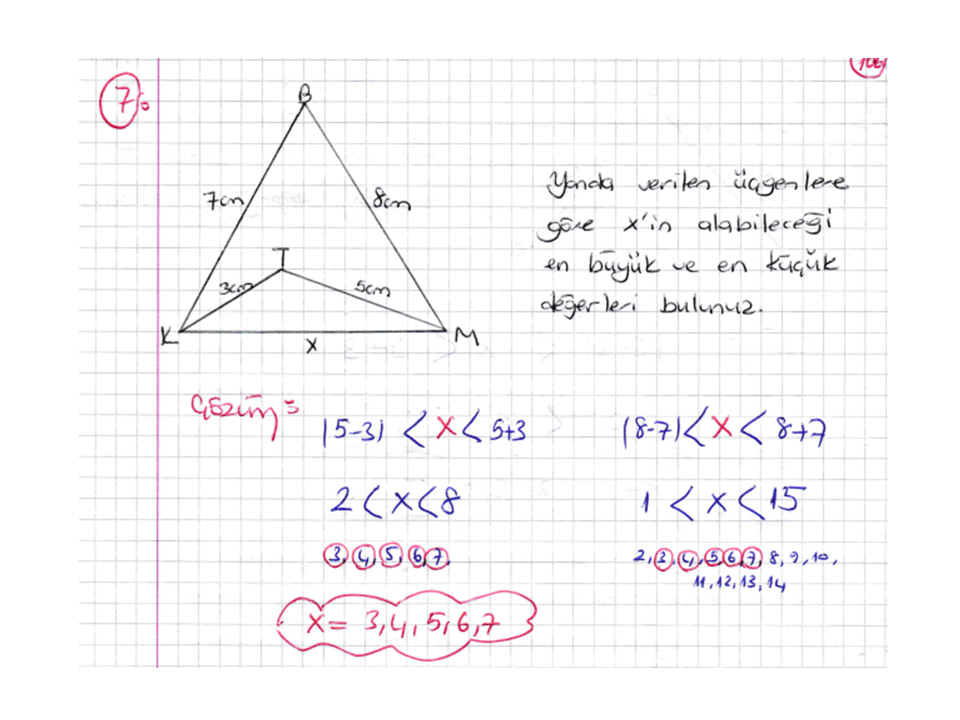 7.
B
7cm
8cm
T
3cm
5cm
K
M
x
Yanda verilen üçgenlere
göre x'in alabileceği
en büyük ve en küçük
değerleri bulunuz.
Çözüm:
|5-3| < x < 5+3
|8-7| < x < 8+7
2 < x < 8
1 < x < 15
3, 4, 5, 6, 7
2, 3, 4, 5, 6, 7, 8, 9, 10,
11, 12, 13, 14
x = 3, 4, 5, 6, 7